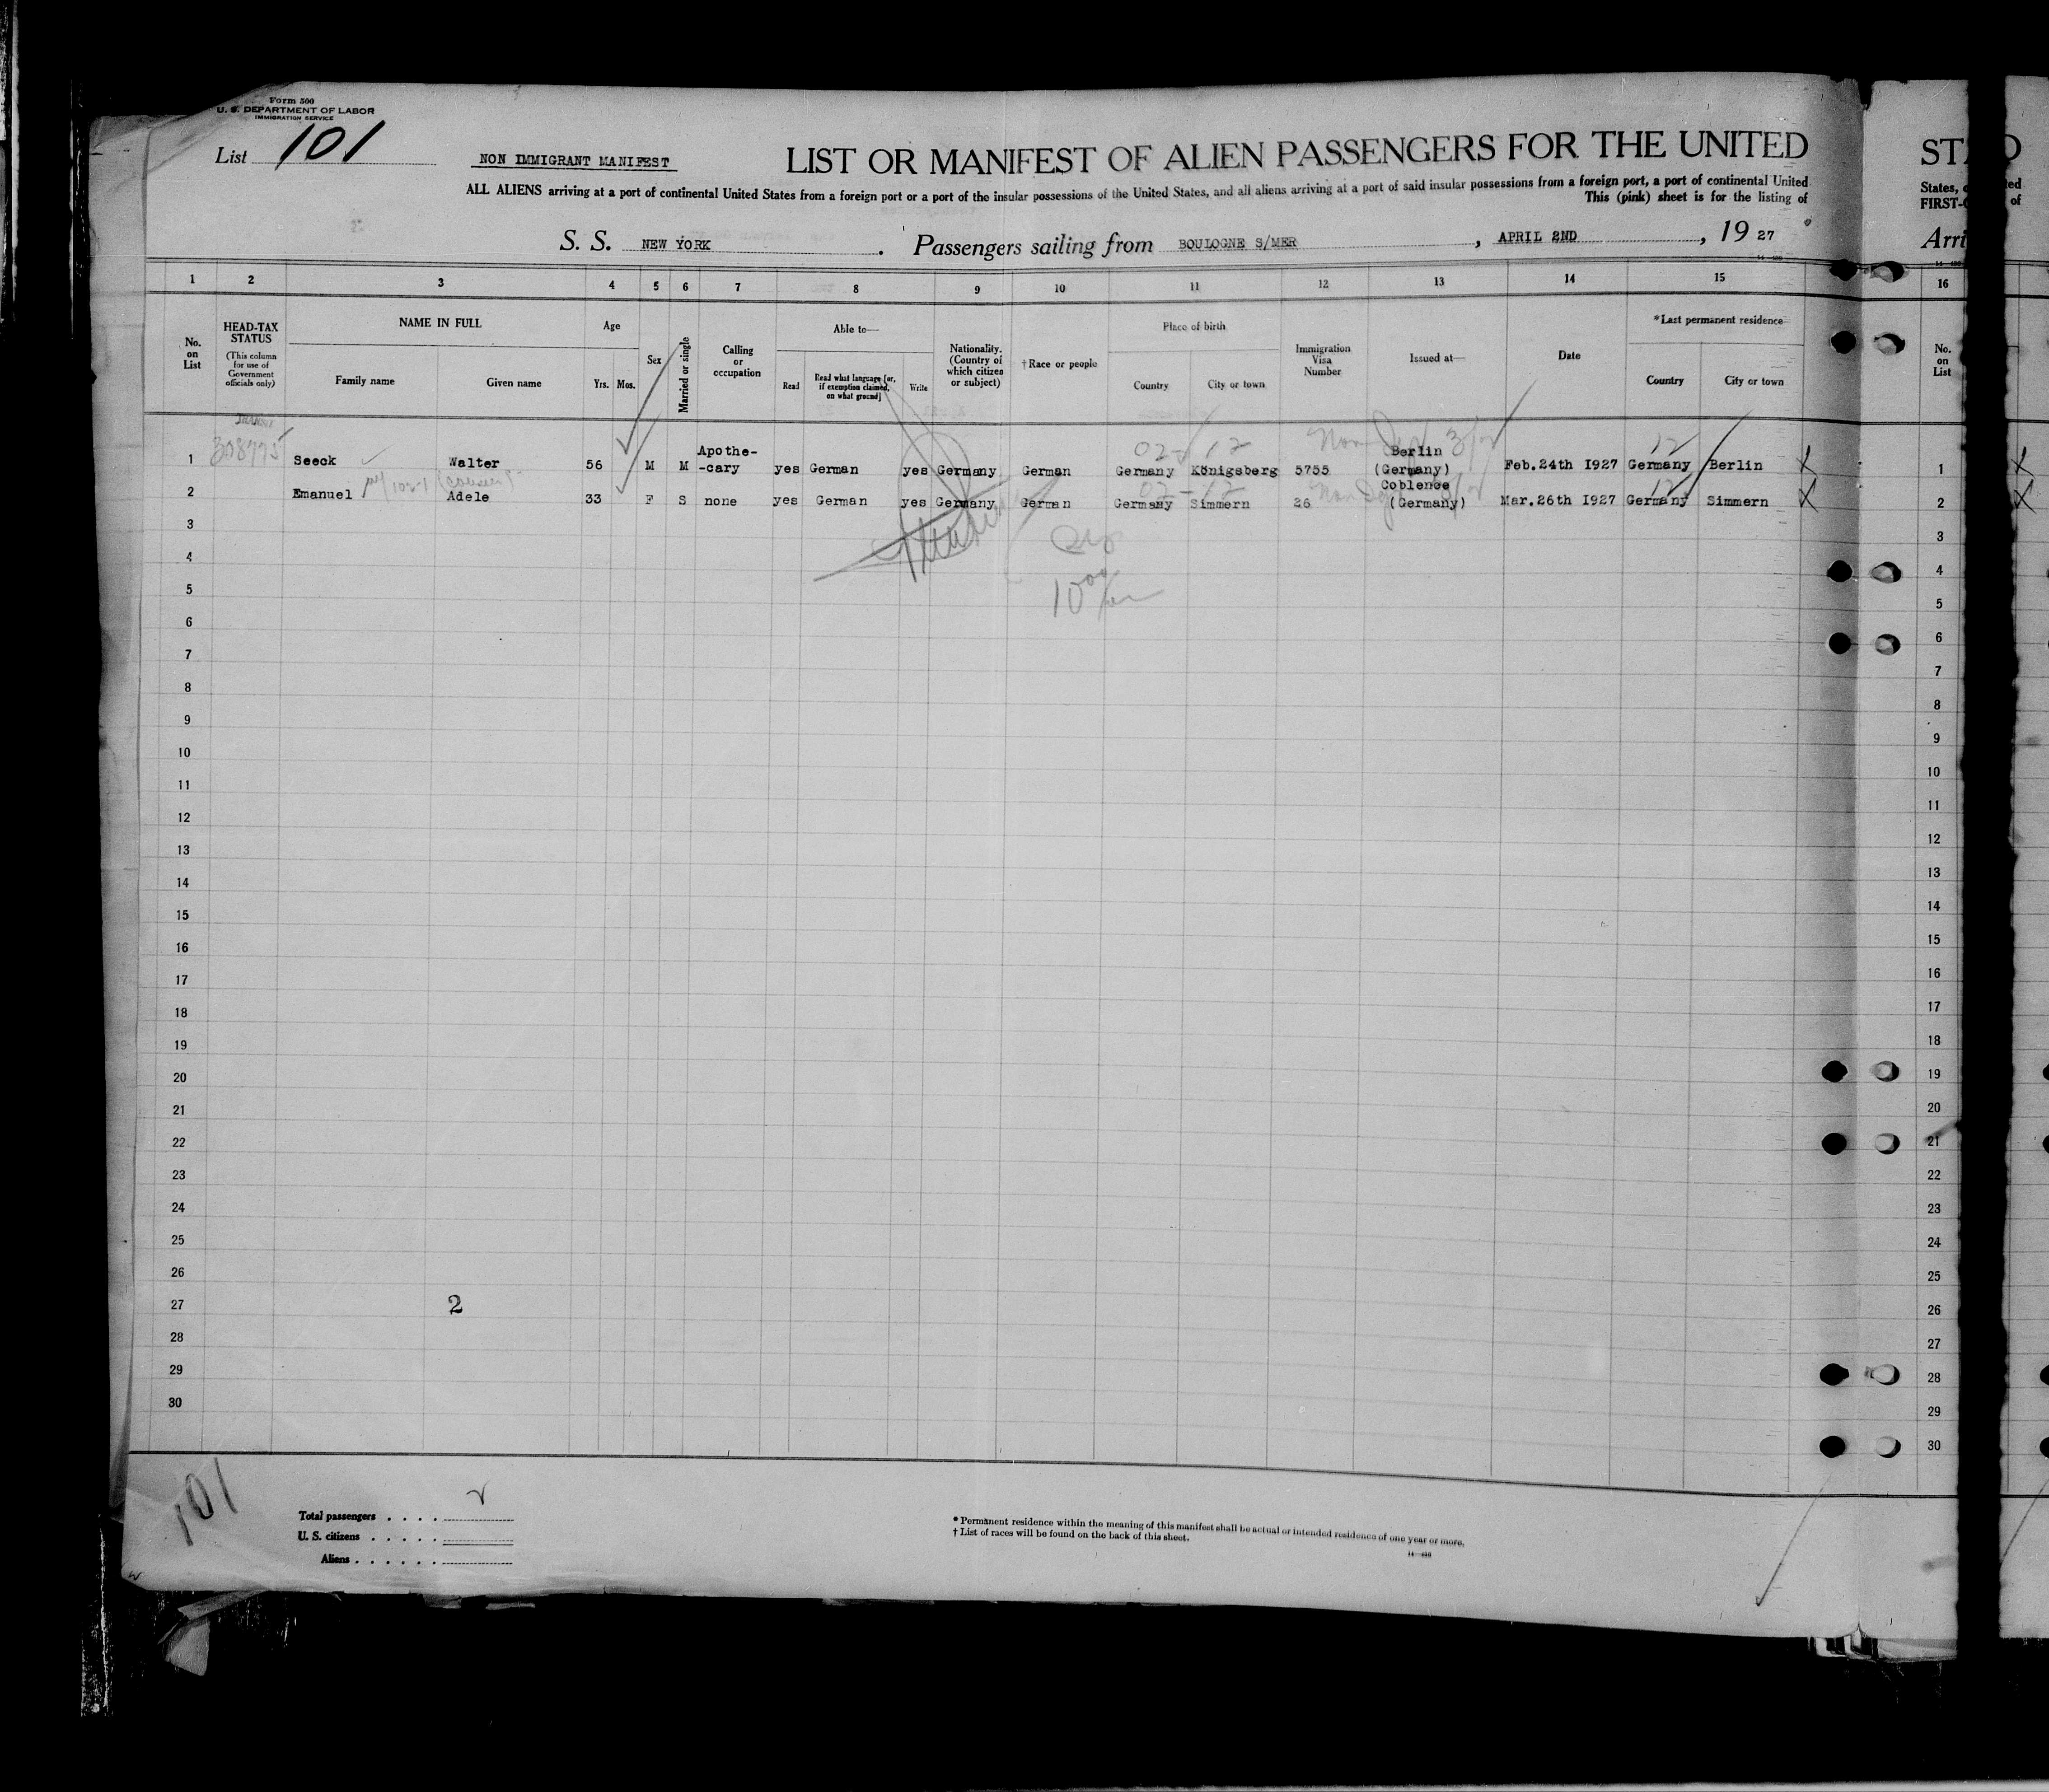 Form 500
U. S. DEPARTMENT OF LABOR
IMMIGRATION SERVICE
List 101
NON IMMIGRANT MANIFEST
LIST OR MANIFEST OF ALIEN PASSENGERS FOR THE UNITED
ALL ALIENS arriving at a port of continental United States from a foreign port or a port of the insular possessions of the United States, and all aliens arriving at a port of said insular possessions from a foreign port, a port of continental United
This (pink) sheet is for the listing of
S. S. NEW YORK. Passengers sailing from BOULOGNE S/MER, APRIL 2ND, 19 27
1 2 3 4 5 6 7 8 9 10 11 12 13 14 15 16
No. on List
HEAD-TAX STATUS
(This column for use of Government officials only)
NAME IN FULL
Family name Given name
Age
Yrs. Mos.
Sex
Married or single
Calling or occupation
Able to—
Read
Read what language [or, if exemption claimed, on what ground]
Write
Nationality. (Country of which citizen or subject)
†Race or people
Place of birth
Country City or town
Immigration Visa Number
Issued at—
Date
*Last permanent residence
Country City or town
No. on List
TRANSIT
02-12
12
1 308775 Seeck Walter 56 M M Apothe- -cary yes German yes Germany German Germany Königsberg 5755 Berlin (Germany) Feb.24th 1927 Germany Berlin X 1 X
102-1 (cousin)
02-12
12
2 Emanuel Adele 33 F S none yes German yes Germany German Germany Simmern 26 Coblence (Germany) Mar.26th 1927 Germany Simmern X 2 X
3 3
4 4
5 5
6 6
7 7
8 8
9 9
10 10
11 11
12 12
13 13
14 14
15 15
16 16
17 17
18 18
19 19
20 20
21 21
22 22
23 23
24 24
25 25
26 26
27 2 27
28 28
29 29
30 30
101
Total passengers . . . .
U. S. citizens . . . . .
Aliens . . . . . .
* Permanent residence within the meaning of this manifest shall be actual or intended residence of one year or more.
† List of races will be found on the back of this sheet.